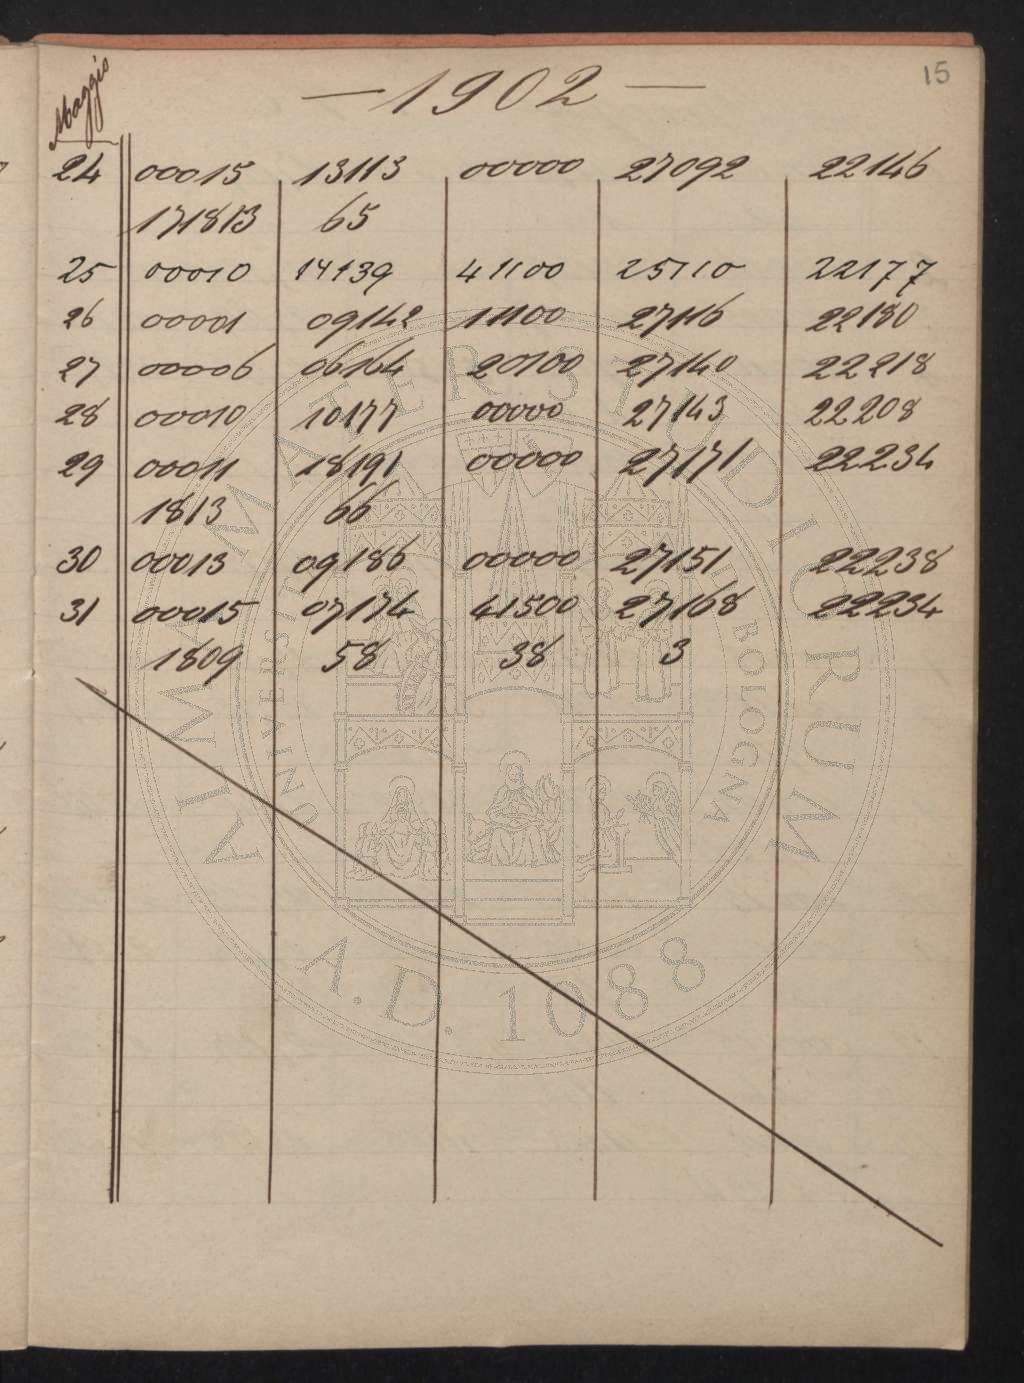 15
Maggio
— 1902 —
24 00015 13113 00000 27092 22146
171813 65
25 00010 14139 41100 25110 22177
26 00001 09142 11100 27116 22180
27 00006 06164 20100 27140 22218
28 00010 10177 00000 27143 22208
29 00011 18191 00000 27171 22234
1813 66
30 00013 09186 00000 27151 22238
31 00015 07174 41500 27168 22234
1809 58 38 3
ALMA MATER STUDIORUM
UNIVERSITÀ DI BOLOGNA
A.D. 1088